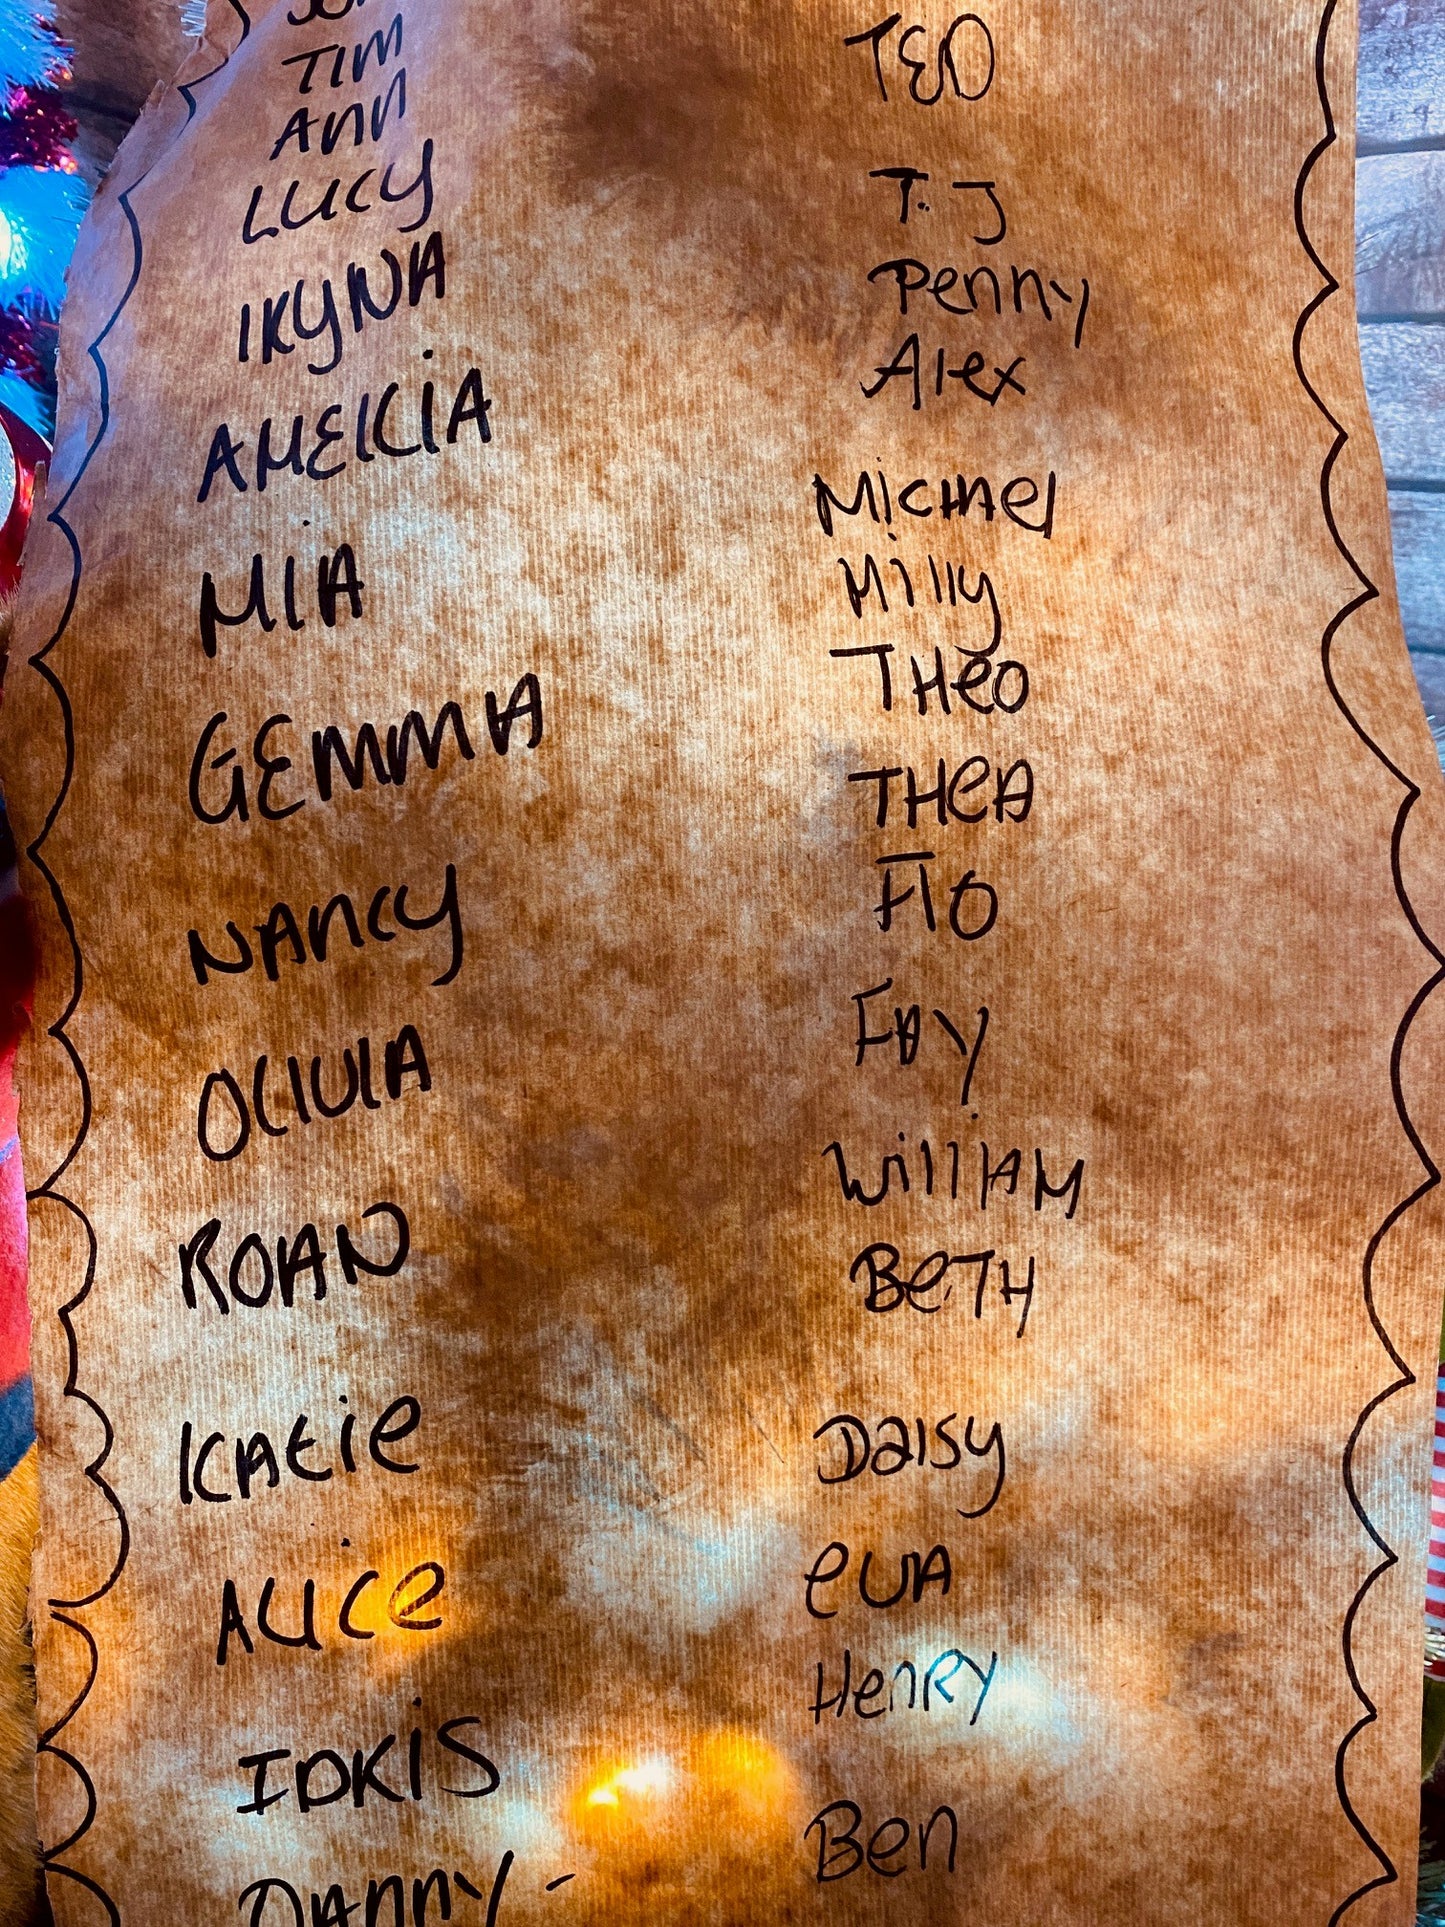 TIM
Ann
LUCY
IKYNA
AMELIA
MiA
GEMMA
NANCY
OLIVIA
ROAN
KAtie
ALiCe
IDKiS
DANNY -
TED
T. J
Penny
Alex
MicHAel
Milly
THeo
THeA
Flo
FAY
WilliAM
BeTH
Daisy
evA
HenRY
Ben